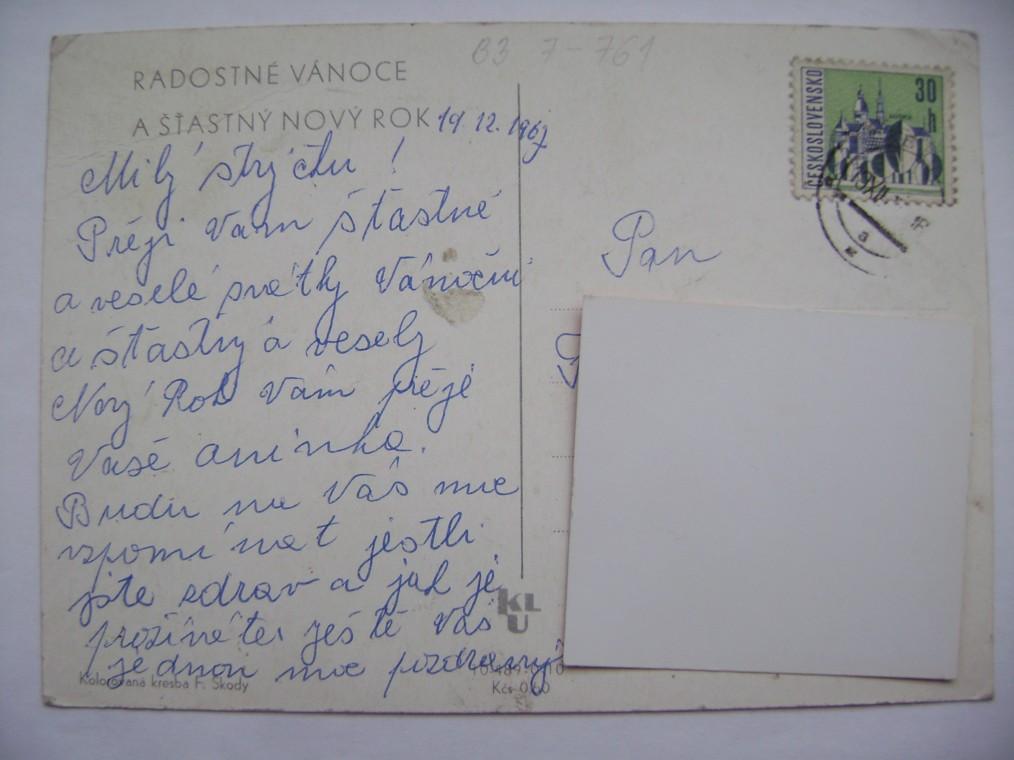 B3 7-761
RADOSTNÉ VÁNOCE
A ŠŤASTNÝ NOVÝ ROK 19.12.1967
Milý strýčku!
Přeji Vám šťastné
a veselé svátky Vánoční
a šťastný a veselý
Nový Rok Vám přeje
Vaše aninka.
Budu na Vás moc
vzpomínat jestli
jste zdrav a jak je
prožíváte, ještě Vás
jednou moc pozdravuj
Kolorovaná kresba F. Škody
KLU
Kčs 0,60
ČESKOSLOVENSKO
30 h
Pan